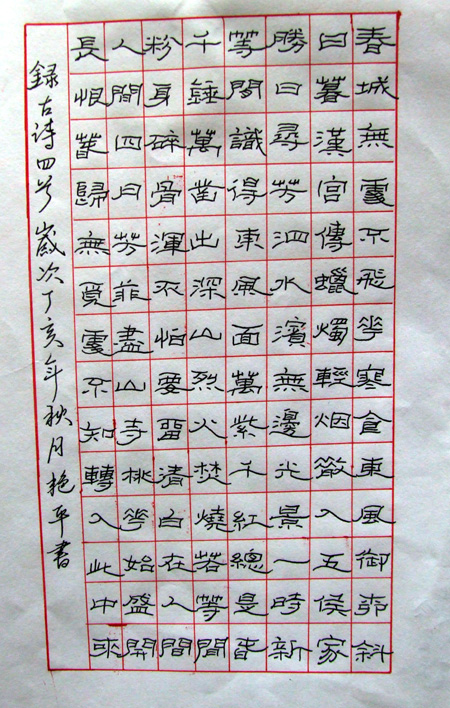 春城無處不飛花寒食東風御柳斜
日暮漢宮傳蠟燭輕烟散入五侯家
勝日尋芳泗水濱無邊光景一時新
等間識得東風面萬紫千紅總是春
千錘萬鑿出深山烈火焚燒若等間
粉身碎骨渾不怕要留清白在人間
人間四月芳菲盡山寺桃花始盛開
長恨春歸無覓處不知轉入此中來
錄古詩四首歲次丁亥年秋月艳平書